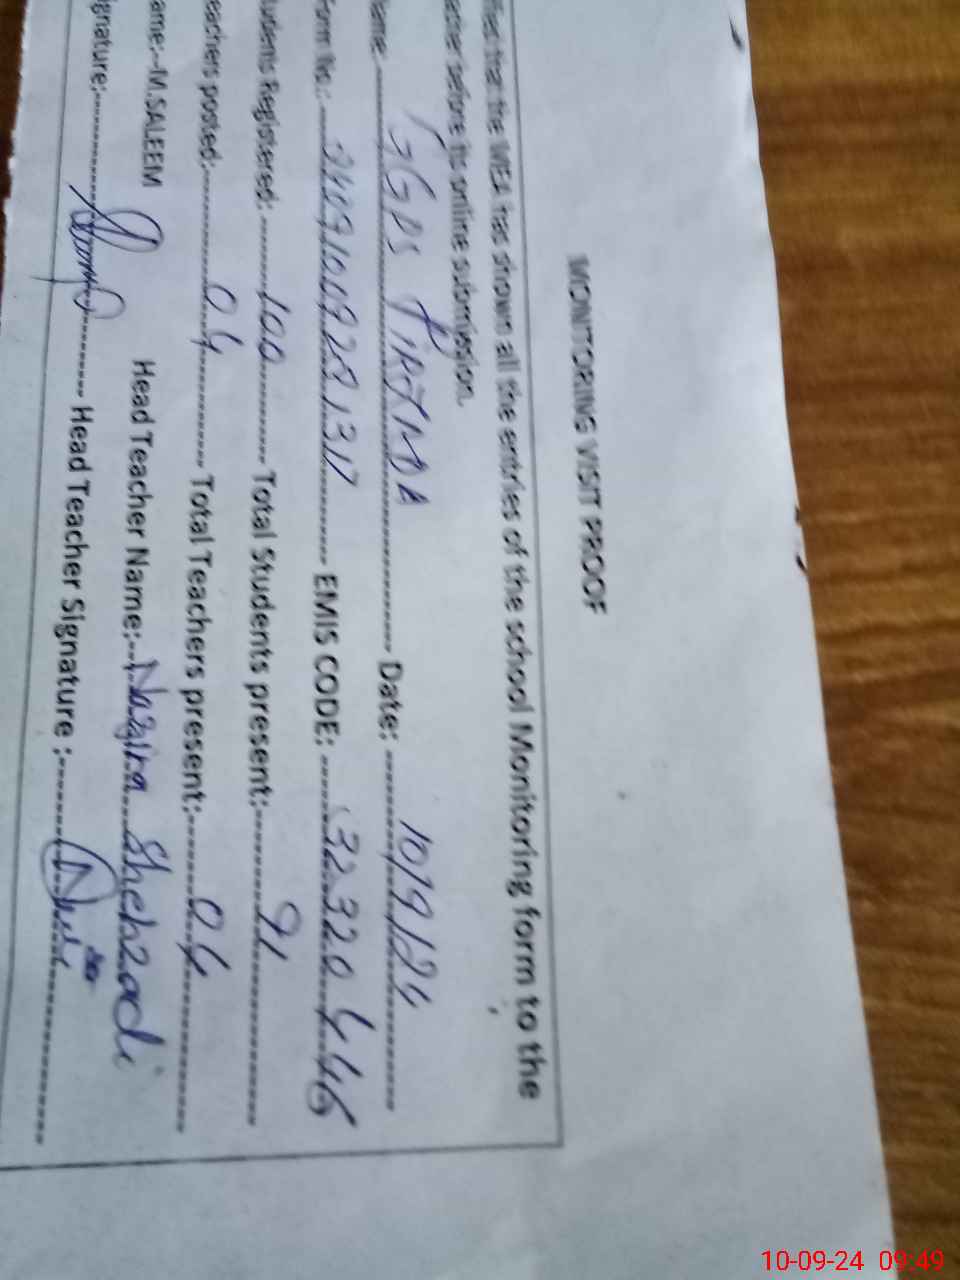 MONITORING VISIT PROOF
that the MEA has shown all the entries of the school Monitoring form to the
before its online submission.
GGPS Date: 10/9/24
Form No.: EMIS CODE: 32320446
udents Registered: 100 Total Students present: 91
eachers posted: 04 Total Teachers present: 04
ame:-M.SALEEM Head Teacher Name: Nazira Shehzadi
ignature: Head Teacher Signature :
10-09-24 09:49